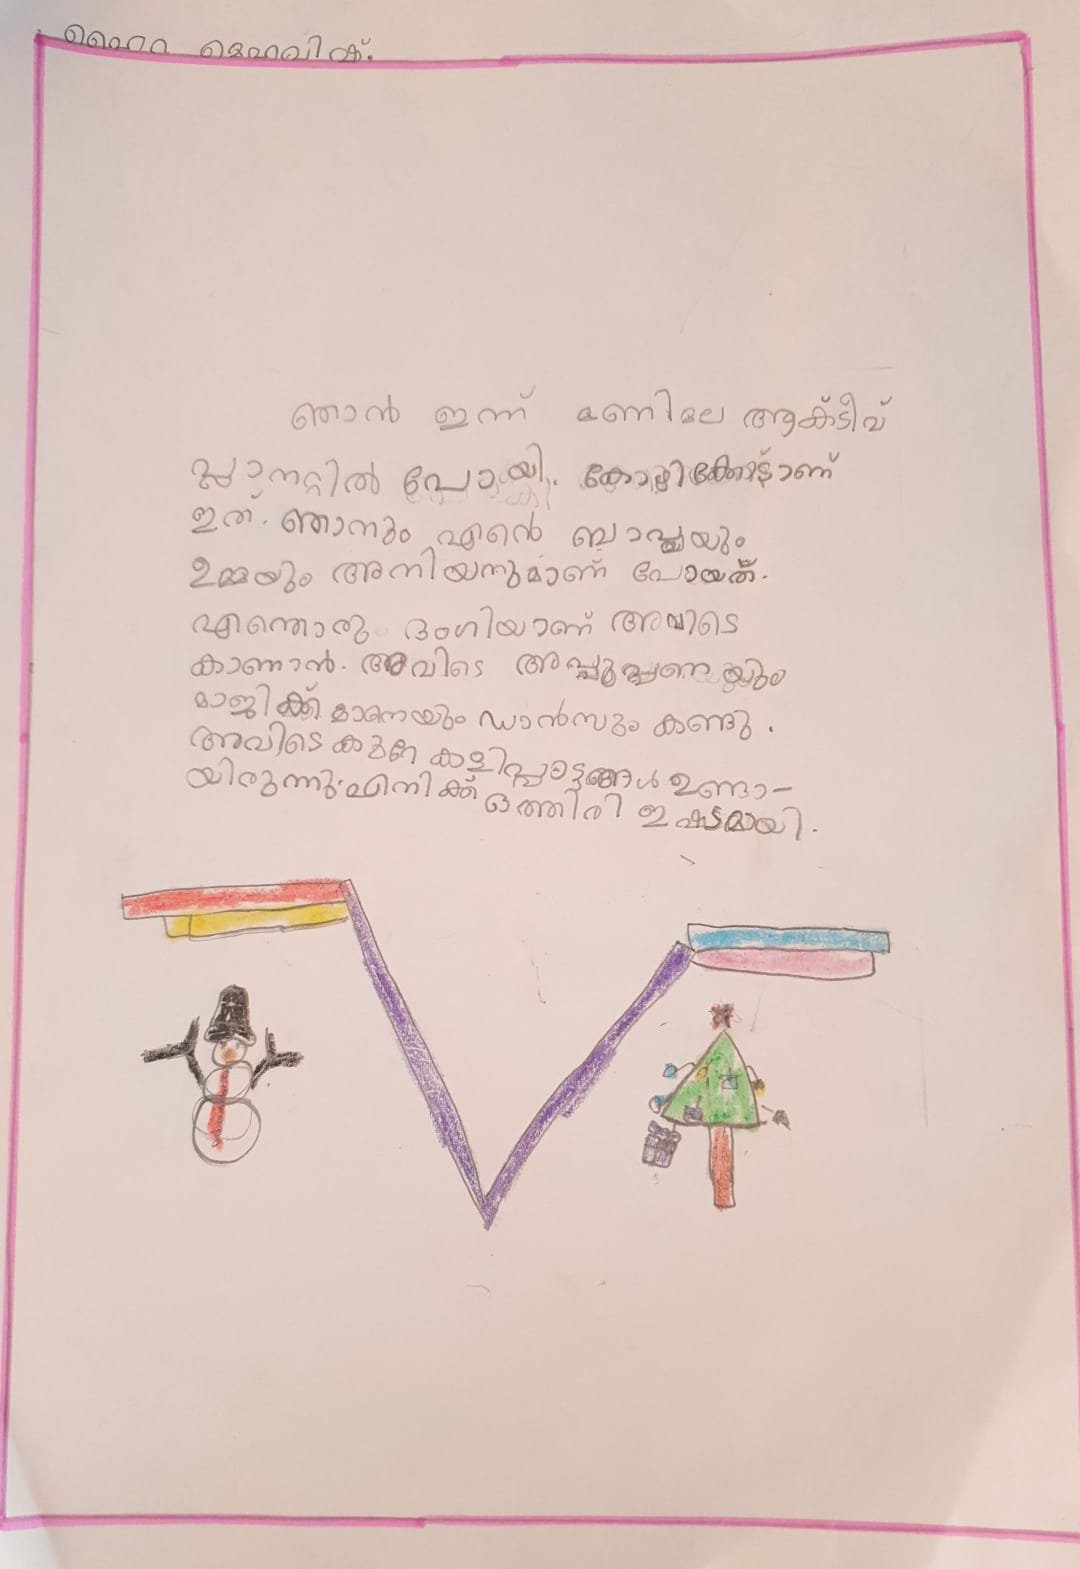 ഹൈറ മെഹവിഷ്.
ഞാൻ ഇന്ന് മണിമല ആക്ടീവ്
പ്ലാനറ്റിൽ പോയി. കോഴിക്കോട്ടാണ്
ഇത്. ഞാനും എൻെ ബാപ്പയും
ഉമ്മയും അനിയനുമാണ് പോയത്.
എന്തൊരു ഭംഗിയാണ് അവിടെ
കാണാൻ. അവിടെ അപ്പൂപ്പനെയും
മാജിക്ക് മാനെയും ഡാൻസും കണ്ടു.
അവിടെ കുറേ കളിപ്പാട്ടങ്ങൾ ഉണ്ടാ-
യിരുന്നു. എനിക്ക് ഒത്തിരി ഇഷ്ടമായി.